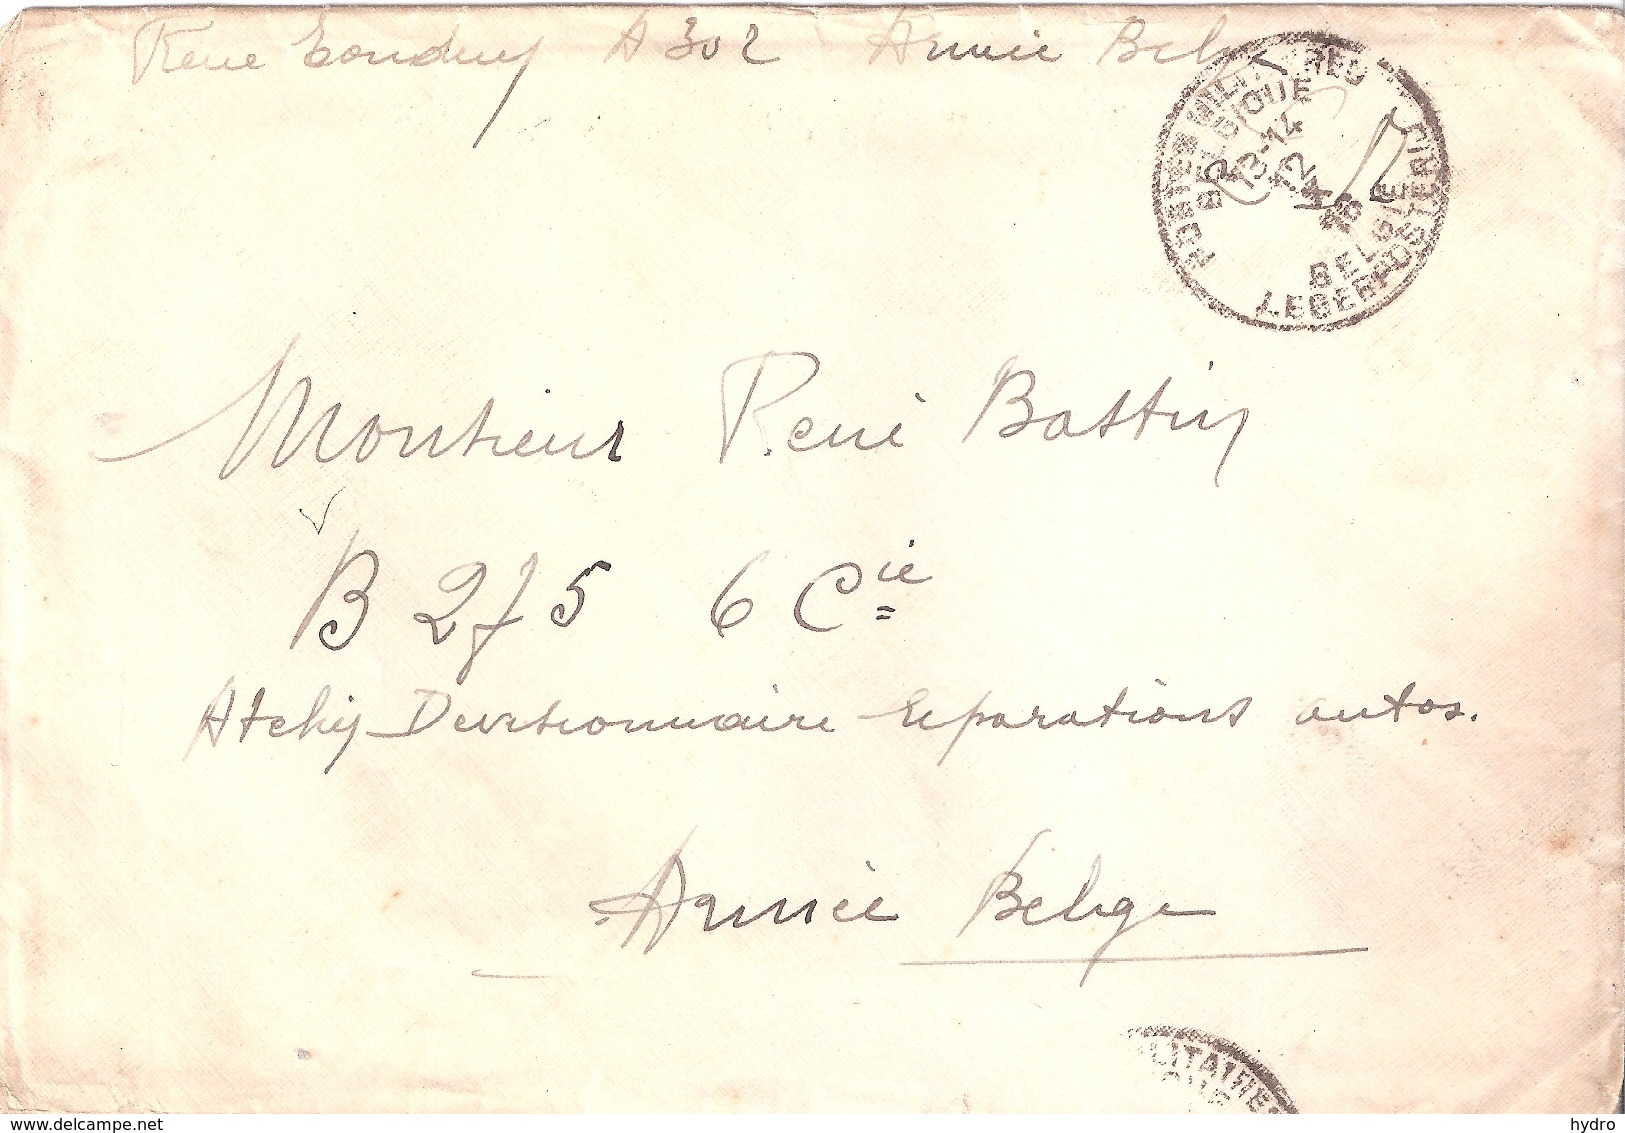 René A 302 Armée Belge
POSTES MILITAIRES
BELGIQUE
13-14
12
BELGIE
LEGERPOSTERIJ
Monsieur René Bastin
B 275 6 Cie
Divisionnaire Réparations autos.
Armée Belge
delcampe.net
hydro